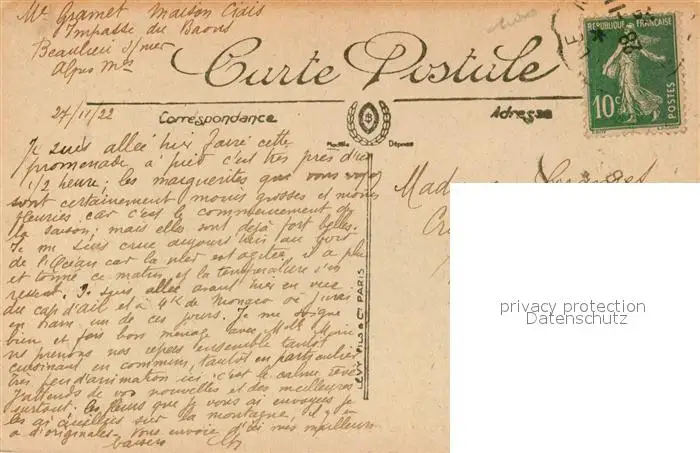 Mr Gramet Maison Ciais
Impasse du Baous
Beaulieu s/mer
Alpes Mes
Carte Postale
RÉPUBLIQUE FRANÇAISE
10c
POSTES
27/11/22
Correspondance
Adresse
Modèle Déposé
Je suis allée hier faire cette
promenade à pied c'est très près d'ici
1/2 heure; les marguerites que vous voyez
sont certainement moins grosses et moins
fleuries car c'est le commencement de
la saison; mais elles sont déjà fort belles.
Je me suis crue aujourd'hui au bord
de l'Océan car la mer est agitée, il a plu
et tonné ce matin, et la température s'en
ressent. Je suis allée avant hier en vue
du cap d'ail et à 4k de Monaco où j'irai
en tram un de ces jours. Je me soigne
bien, et fais bon ménage avec Melle Marie
ns prenons nos repas ensemble tantôt
cuisinant en commun, tantôt en particulier
Très peu d'animation ici c'est le calme rêvé
J'attends de vos nouvelles et des meilleures
surtout. Les fleurs que je vous ai envoyées je
les ai cueillies sur la montagne, il y en
a d'originales. Vous envoie d'ici mes meilleurs
baisers
LÉVY FILS & Cie PARIS
privacy protection
Datenschutz